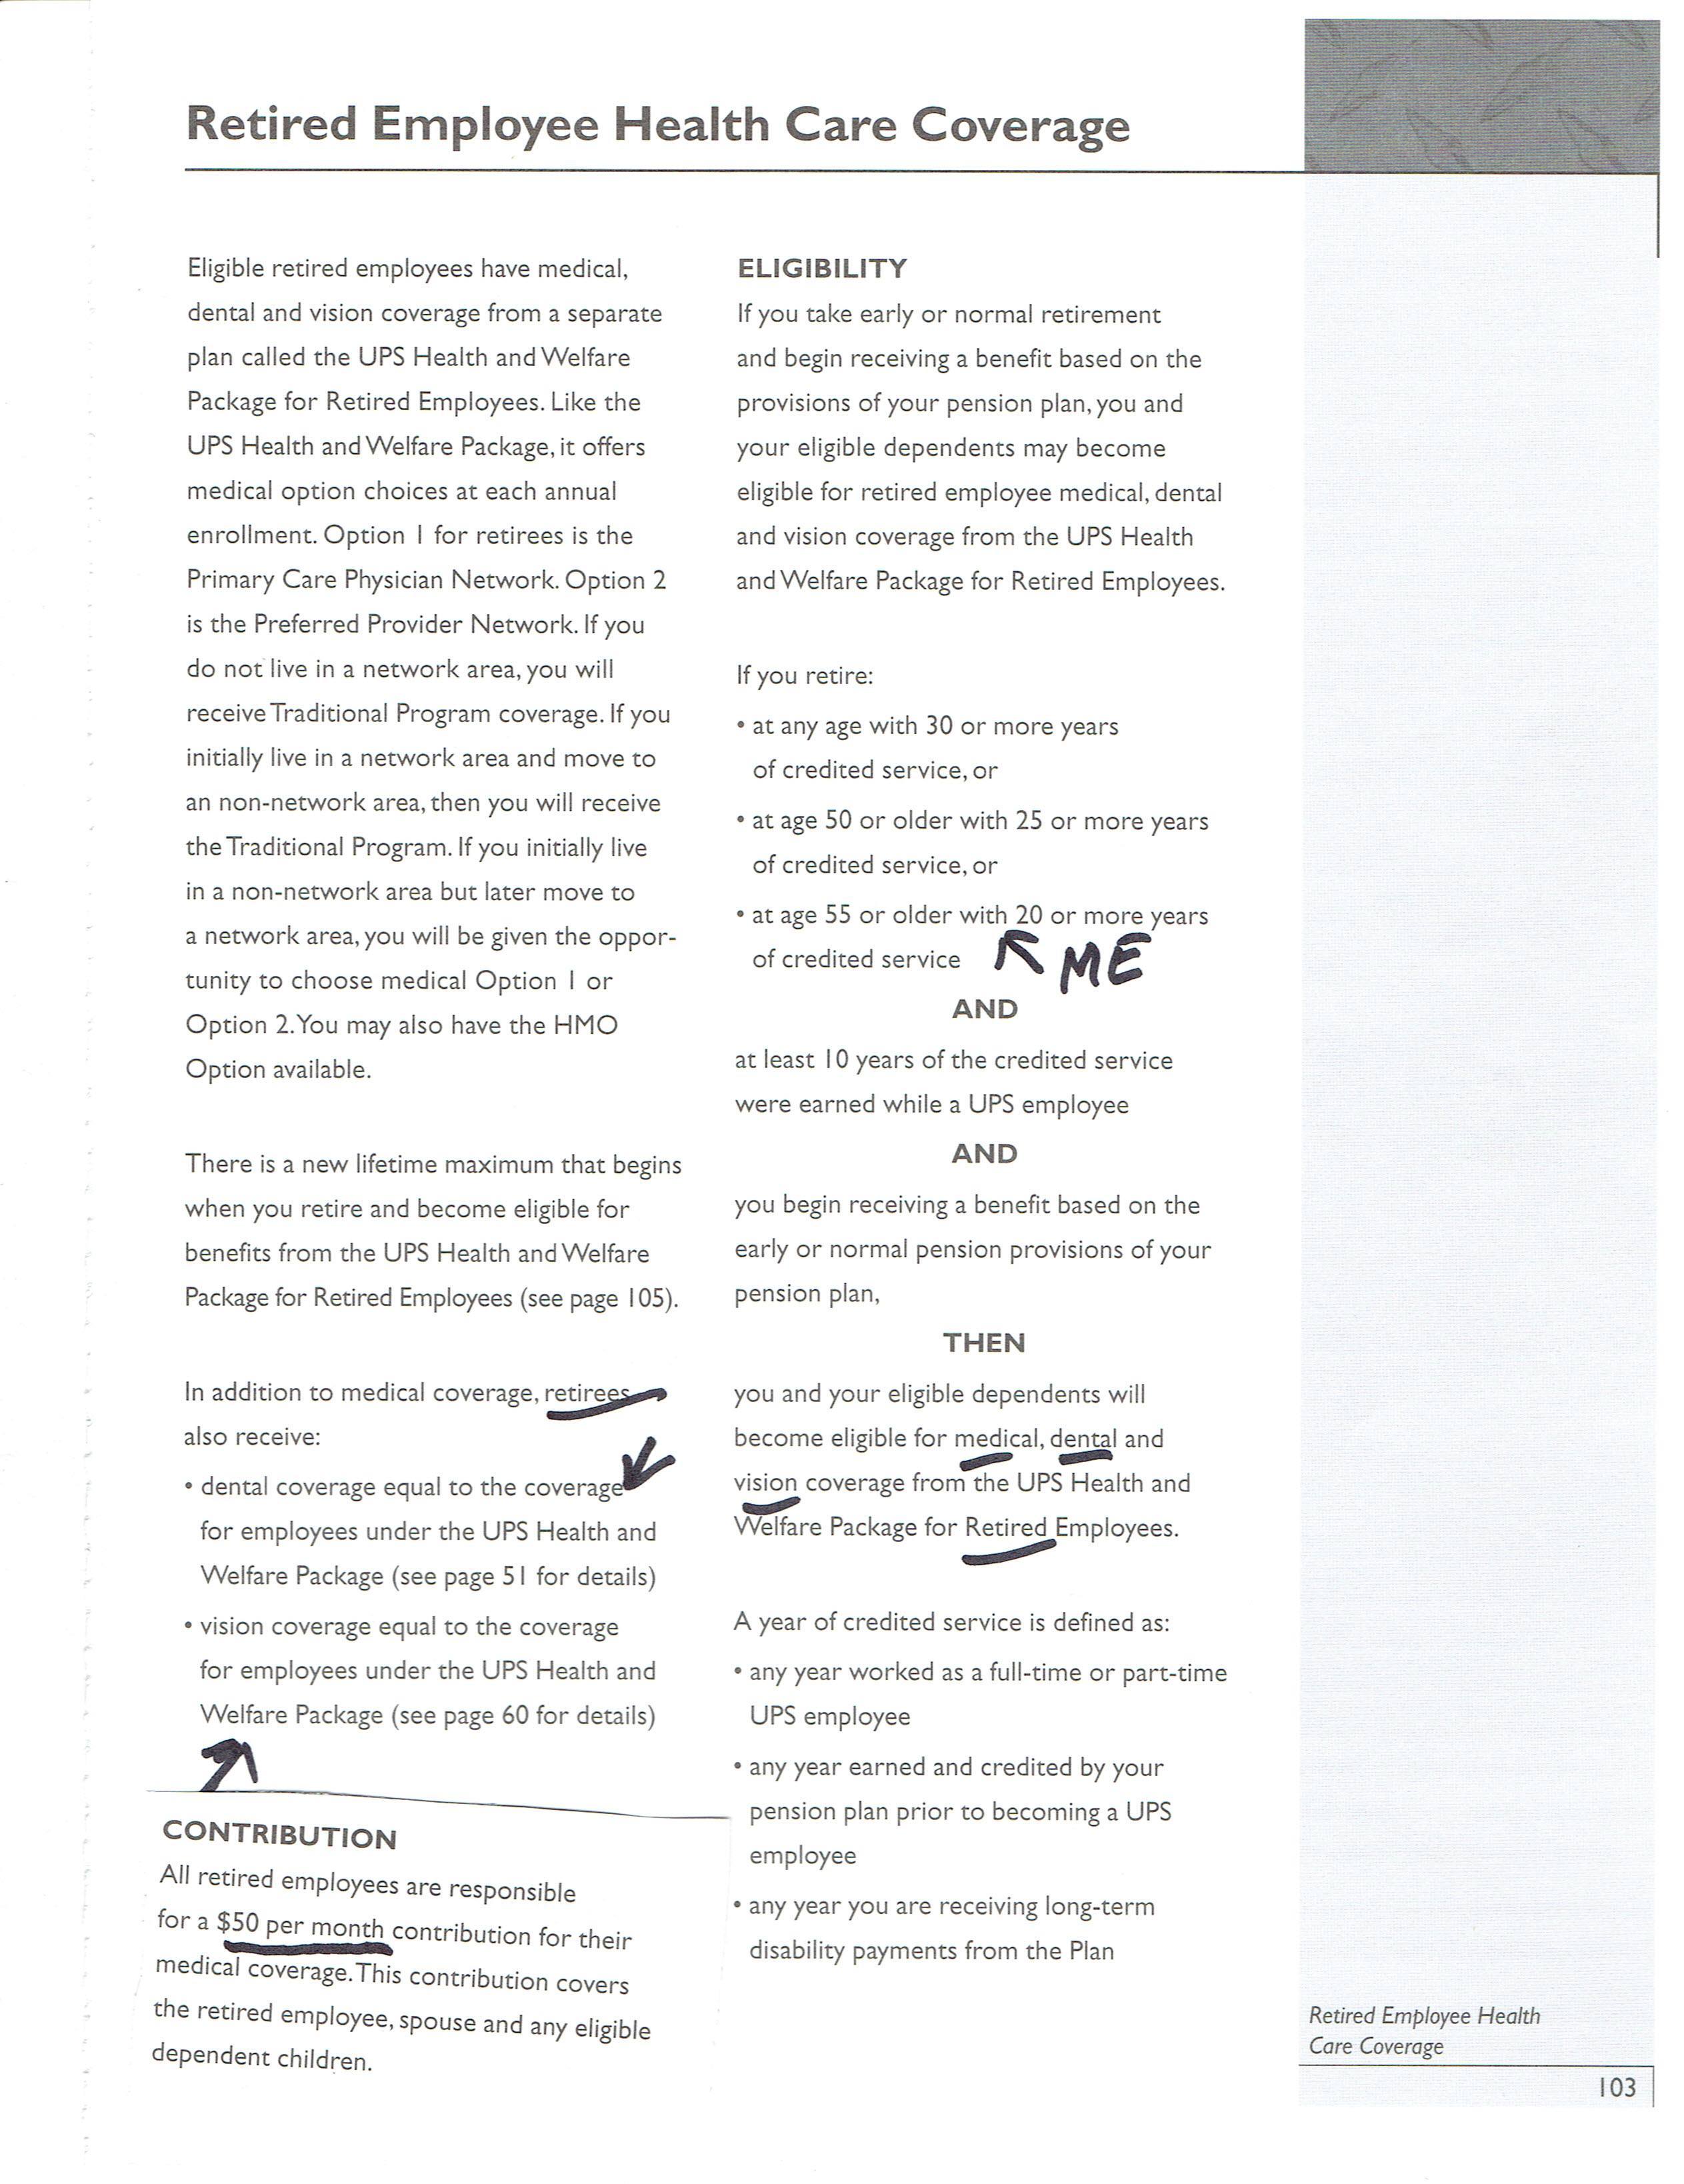 Retired Employee Health Care Coverage
Eligible retired employees have medical,
dental and vision coverage from a separate
plan called the UPS Health and Welfare
Package for Retired Employees. Like the
UPS Health and Welfare Package, it offers
medical option choices at each annual
enrollment. Option 1 for retirees is the
Primary Care Physician Network. Option 2
is the Preferred Provider Network. If you
do not live in a network area, you will
receive Traditional Program coverage. If you
initially live in a network area and move to
an non-network area, then you will receive
the Traditional Program. If you initially live
in a non-network area but later move to
a network area, you will be given the oppor-
tunity to choose medical Option 1 or
Option 2. You may also have the HMO
Option available.
There is a new lifetime maximum that begins
when you retire and become eligible for
benefits from the UPS Health and Welfare
Package for Retired Employees (see page 105).
In addition to medical coverage, retirees
also receive:
• dental coverage equal to the coverage
for employees under the UPS Health and
Welfare Package (see page 51 for details)
• vision coverage equal to the coverage
for employees under the UPS Health and
Welfare Package (see page 60 for details)
CONTRIBUTION
All retired employees are responsible
for a $50 per month contribution for their
medical coverage. This contribution covers
the retired employee, spouse and any eligible
dependent children.
ELIGIBILITY
If you take early or normal retirement
and begin receiving a benefit based on the
provisions of your pension plan, you and
your eligible dependents may become
eligible for retired employee medical, dental
and vision coverage from the UPS Health
and Welfare Package for Retired Employees.
If you retire:
• at any age with 30 or more years
of credited service, or
• at age 50 or older with 25 or more years
of credited service, or
• at age 55 or older with 20 or more years
of credited service
ME
AND
at least 10 years of the credited service
were earned while a UPS employee
AND
you begin receiving a benefit based on the
early or normal pension provisions of your
pension plan,
THEN
you and your eligible dependents will
become eligible for medical, dental and
vision coverage from the UPS Health and
Welfare Package for Retired Employees.
A year of credited service is defined as:
• any year worked as a full-time or part-time
UPS employee
• any year earned and credited by your
pension plan prior to becoming a UPS
employee
• any year you are receiving long-term
disability payments from the Plan
Retired Employee Health
Care Coverage
103